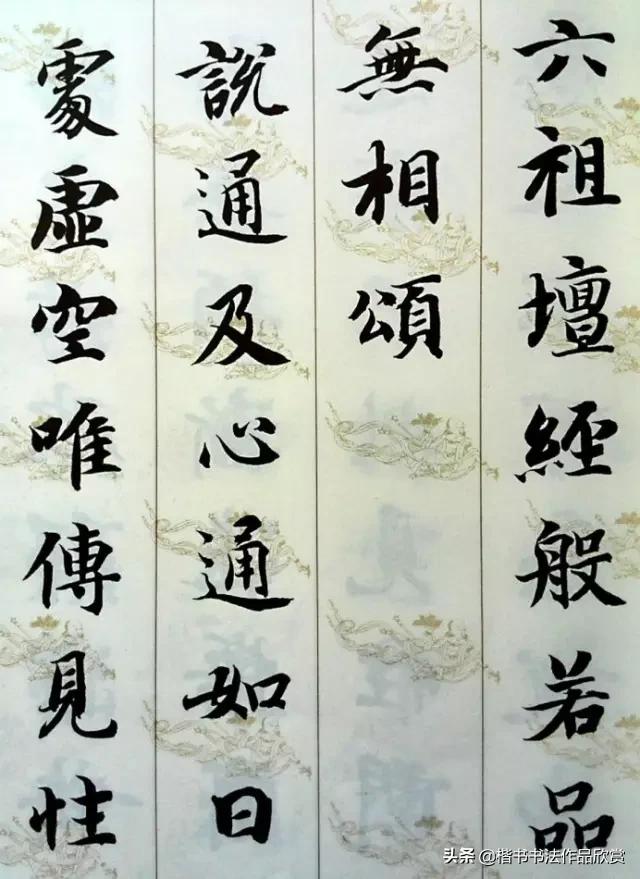 六祖壇經般若品
無相頌
說通及心通如日
處虛空唯傳見性
头条 @楷书书法作品欣赏